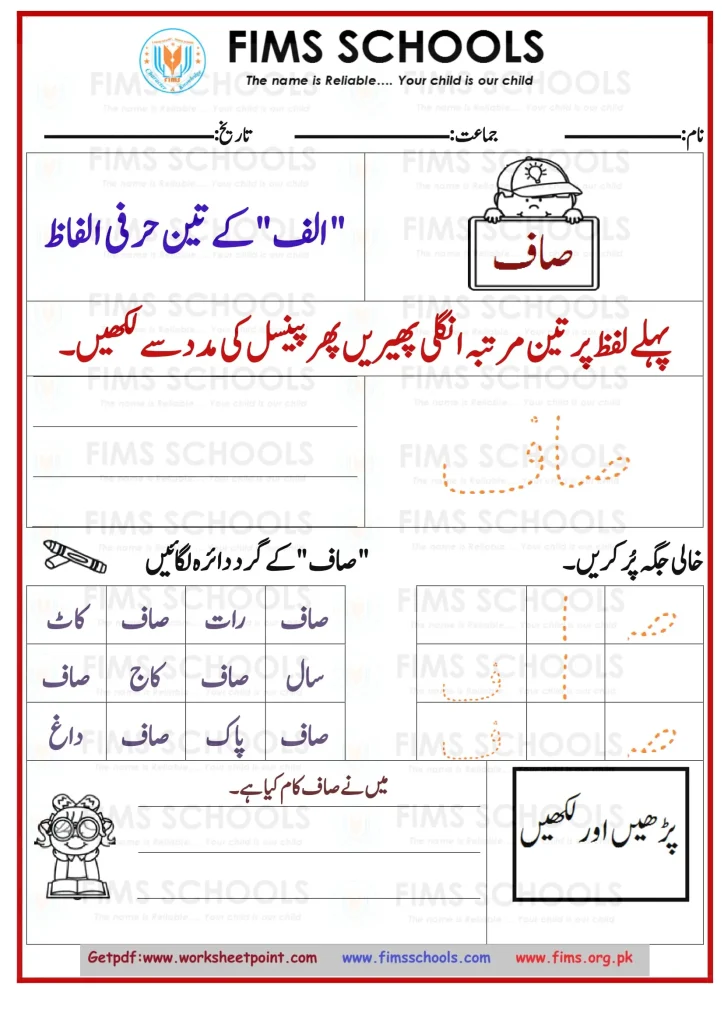 FIMS SCHOOLS
The name is Reliable.... Your child is our child
نام: جماعت: تاریخ:
صاف
"الف" کے تین حرفی الفاظ
پہلے لفظ پر تین مرتبہ انگلی پھیریں پھر پینسل کی مدد سے لکھیں۔
صاف
خالی جگہ پُر کریں۔
صـ ا
ا ف
صـ ف
"صاف" کے گرد دائرہ لگائیں
صاف رات صاف کاٹ
سال صاف کاج صاف
صاف پاک صاف داغ
پڑھیں اور لکھیں
میں نے صاف کام کیا ہے۔
Getpdf:www.worksheetpoint.com www.fimsschools.com www.fims.org.pk